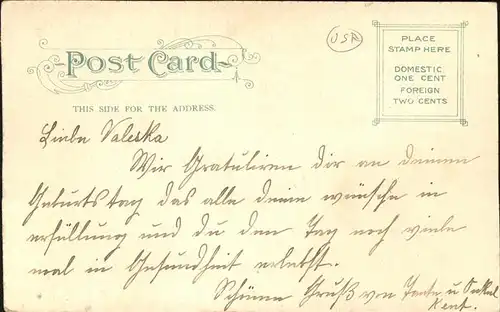 USA
Post Card
THIS SIDE FOR THE ADDRESS.
PLACE
STAMP HERE
DOMESTIC
ONE CENT
FOREIGN
TWO CENTS
Liebe Valeska
Wir Gratuliren dir an deinen
Geburtstag das alle deine wünsche in
erfüllung und du den Tag noch viele
mal in Gesundheit erlebst.
Schöne Gruß von Tante u Onkel